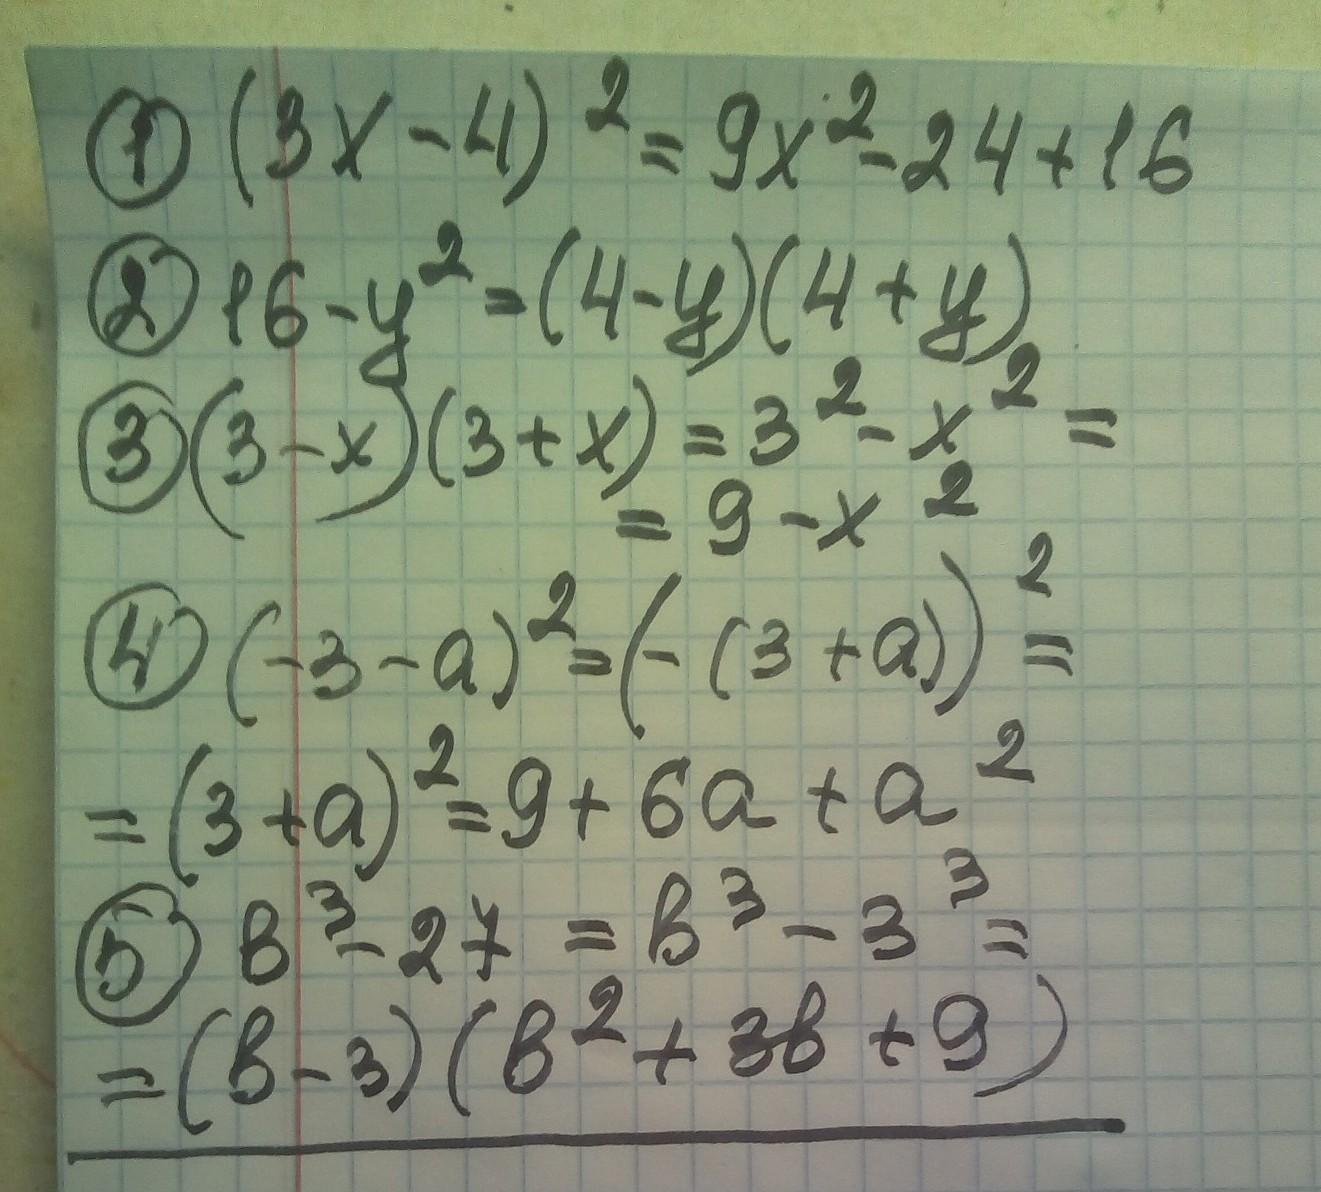 ① (3x - 4)² = 9x² - 24 + 16
② 16 - y² = (4 - y)(4 + y)
③ (3 - x)(3 + x) = 3² - x² =
= 9 - x²
④ (-3 - a)² = (- (3 + a))² =
= (3 + a)² = 9 + 6a + a²
⑤ в³ - 27 = в³ - 3³ =
= (в - 3)(в² + 3в + 9)